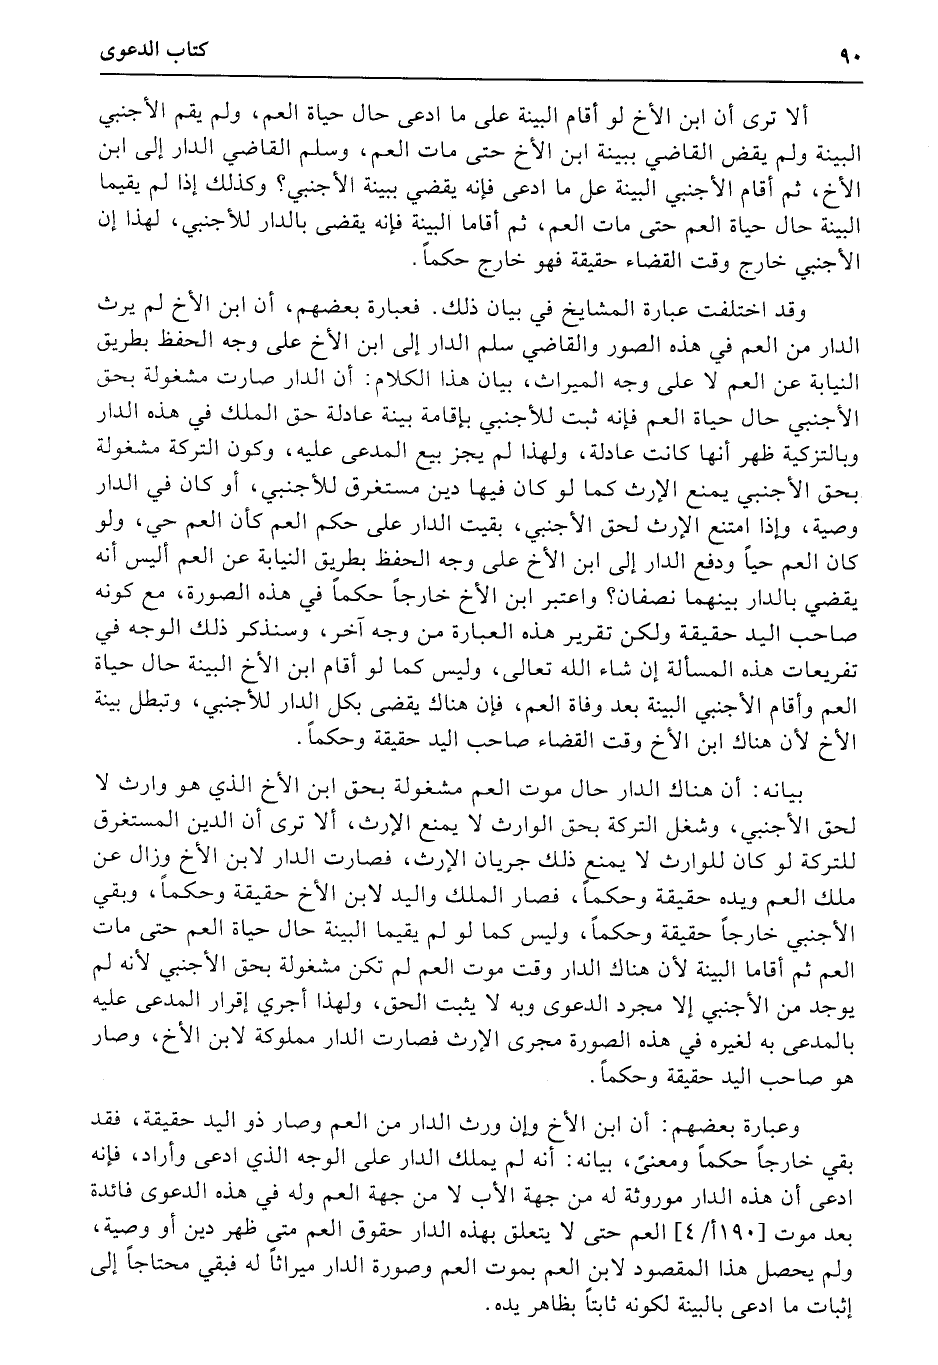 ٩٠ كتاب الدعوى
ألا ترى أن ابن الأخ لو أقام البينة على ما ادعى حال حياة العم، ولم يقم الأجنبي
البينة ولم يقض القاضي ببينة ابن الأخ حتى مات العم، وسلم القاضي الدار إلى ابن
الأخ، ثم أقام الأجنبي البينة عل ما ادعى فإنه يقضي ببينة الأجنبي؟ وكذلك إذا لم يقيما
البينة حال حياة العم حتى مات العم، ثم أقاما البينة فإنه يقضى بالدار للأجنبي، لهذا إن
الأجنبي خارج وقت القضاء حقيقة فهو خارج حكماً.
وقد اختلفت عبارة المشايخ في بيان ذلك. فعبارة بعضهم، أن ابن الأخ لم يرث
الدار من العم في هذه الصور والقاضي سلم الدار إلى ابن الأخ على وجه الحفظ بطريق
النيابة عن العم لا على وجه الميراث، بيان هذا الكلام: أن الدار صارت مشغولة بحق
الأجنبي حال حياة العم فإنه ثبت للأجنبي بإقامة بينة عادلة حق الملك في هذه الدار
وبالتزكية ظهر أنها كانت عادلة، ولهذا لم يجز بيع المدعى عليه، وكون التركة مشغولة
بحق الأجنبي يمنع الإرث كما لو كان فيها دين مستغرق للأجنبي، أو كان في الدار
وصية، وإذا امتنع الإرث لحق الأجنبي، بقيت الدار على حكم العم كأن العم حي، ولو
كان العم حياً ودفع الدار إلى ابن الأخ على وجه الحفظ بطريق النيابة عن العم أليس أنه
يقضي بالدار بينهما نصفان؟ واعتبر ابن الأخ خارجاً حكماً في هذه الصورة، مع كونه
صاحب اليد حقيقة ولكن تقرير هذه العبارة من وجه آخر، وسنذكر ذلك الوجه في
تفريعات هذه المسألة إن شاء الله تعالى، وليس كما لو أقام ابن الأخ البينة حال حياة
العم وأقام الأجنبي البينة بعد وفاة العم، فإن هناك يقضى بكل الدار للأجنبي، وتبطل بينة
الأخ لأن هناك ابن الأخ وقت القضاء صاحب اليد حقيقة وحكماً.
بيانه: أن هناك الدار حال موت العم مشغولة بحق ابن الأخ الذي هو وارث لا
لحق الأجنبي، وشغل التركة بحق الوارث لا يمنع الإرث، ألا ترى أن الدين المستغرق
للتركة لو كان للوارث لا يمنع ذلك جريان الإرث، فصارت الدار لابن الأخ وزال عن
ملك العم ويده حقيقة وحكماً، فصار الملك واليد لابن الأخ حقيقة وحكماً، وبقي
الأجنبي خارجاً حقيقة وحكماً، وليس كما لو لم يقيما البينة حال حياة العم حتى مات
العم ثم أقاما البينة لأن هناك الدار وقت موت العم لم تكن مشغولة بحق الأجنبي لأنه لم
يوجد من الأجنبي إلا مجرد الدعوى وبه لا يثبت الحق، ولهذا أجري إقرار المدعى عليه
بالمدعى به لغيره في هذه الصورة مجرى الإرث فصارت الدار مملوكة لابن الأخ، وصار
هو صاحب اليد حقيقة وحكماً.
وعبارة بعضهم: أن ابن الأخ وإن ورث الدار من العم وصار ذو اليد حقيقة، فقد
بقي خارجاً حكماً ومعنىً، بيانه: أنه لم يملك الدار على الوجه الذي ادعى وأراد، فإنه
ادعى أن هذه الدار موروثة له من جهة الأب لا من جهة العم وله في هذه الدعوى فائدة
بعد موت [١٩٠أ/٤] العم حتى لا يتعلق بهذه الدار حقوق العم متى ظهر دين أو وصية،
ولم يحصل هذا المقصود لابن العم بموت العم وصورة الدار ميراثاً له فبقي محتاجاً إلى
إثبات ما ادعى بالبينة لكونه ثابتاً بظاهر يده.